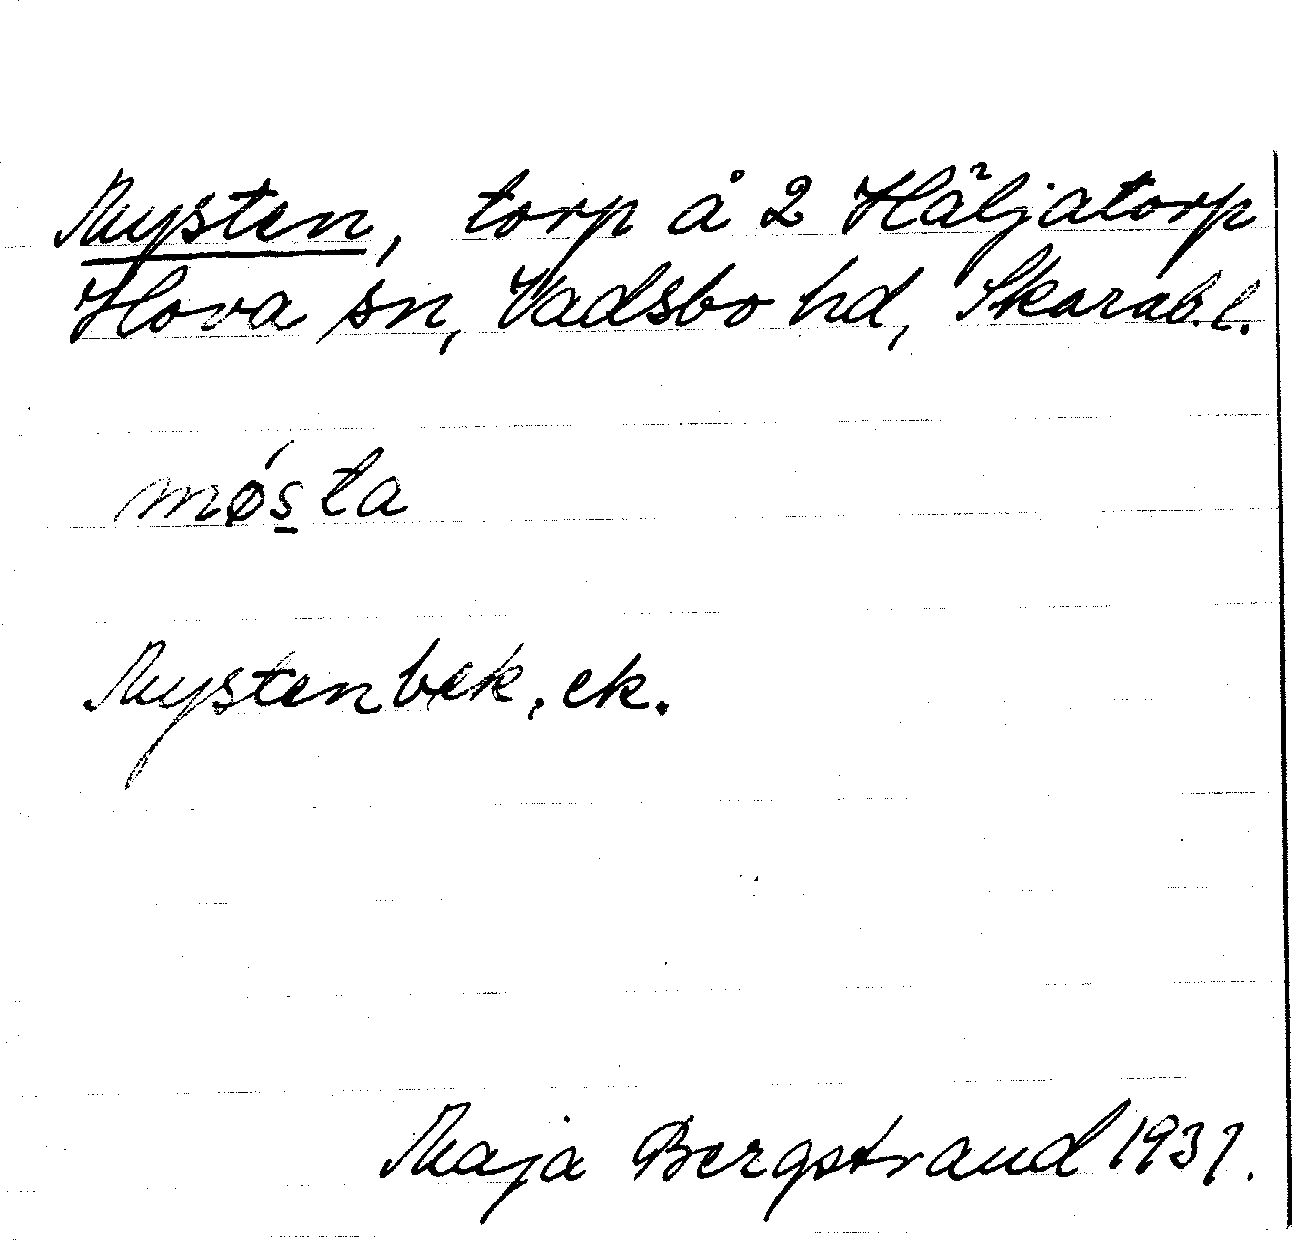 Mysten, torp å 2 Häljatorp
Hova sn, Vadsbo hd, Skarab.l.
møs̲ta
Mysten bek, ek.
Maja Bergstrand 1931.